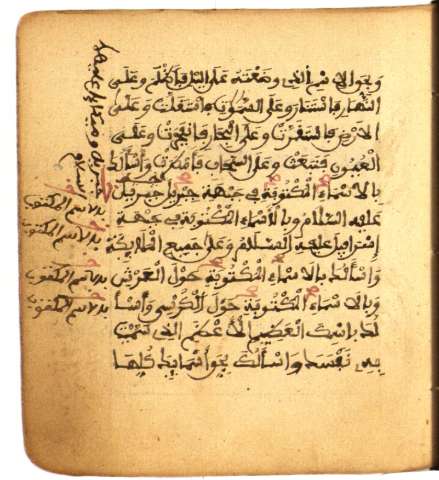 وبحق الاسم الذي وضعته على اليل فاظلم وعلى
النهار فاستنار وعلى السموت فاستقلت وعلى
الارض فاستقرت وعلى البحار فانفجرت وعلى
العيون فنبعت وعلى السحاب فامطرت واسألك
بالاسماء المكتوبة في جبهة جبريل
عليه السلام وبالاسماء المكتوبة في جبهة
إسرافيل عليه السلام وعلى جميع الملايكة
واسألك بالاسماء المكتوبة حول العرش
وبالاسماء المكتوبة حول الكرسي واسأ
لك باسمك العظيم الأعظم الذي سميت
به نفسك واسألك بحق أسمايك كلها
بالاسم المكتوب
بالاسم المكتوب
بالاسم المكتوب
بالاسم المكتوب